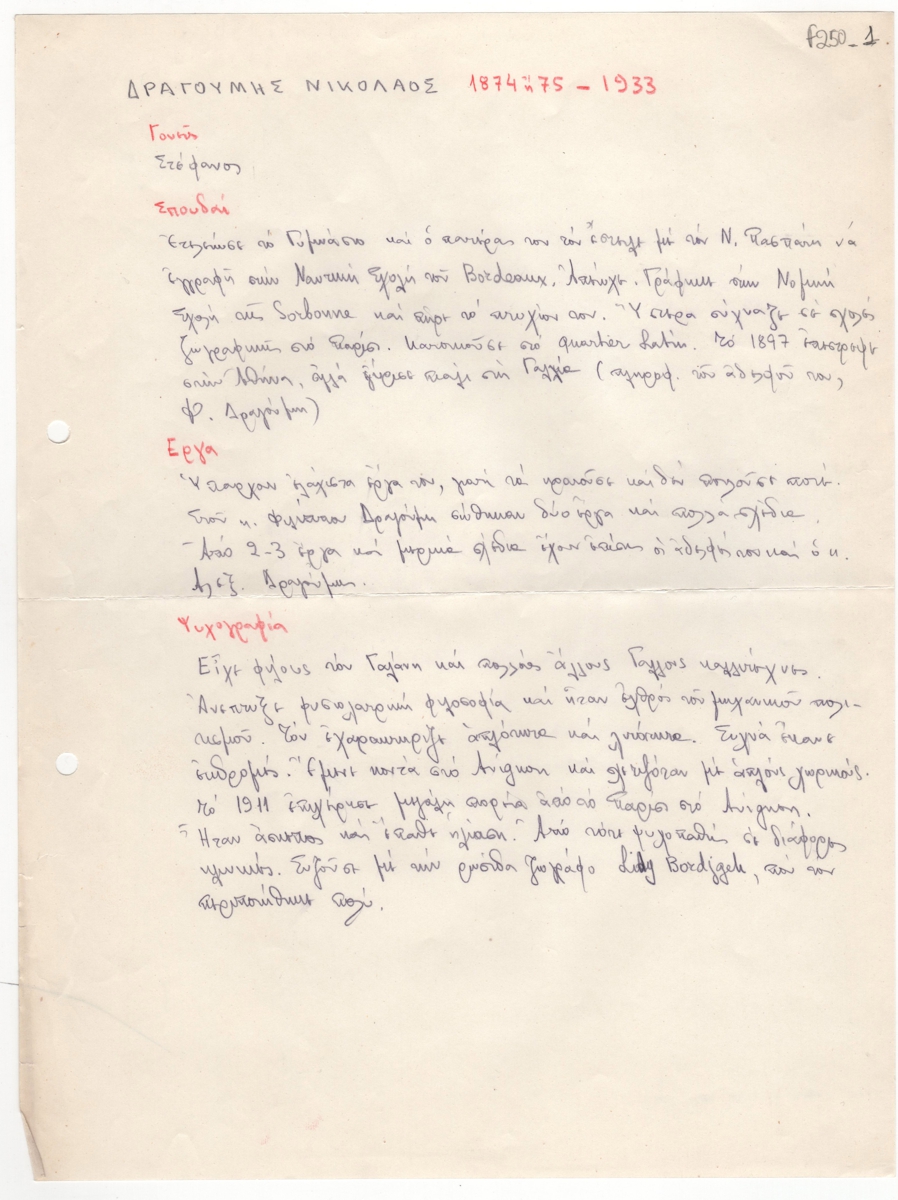 f250_1.
ΔΡΑΓΟΥΜΗΣ ΝΙΚΟΛΑΟΣ 1874 ἤ 75 – 1933
Γονεῖς
Στέφανος
Σπουδαί
Ἐτελείωσε τό Γυμνάσιο καί ὁ πατέρας του τόν ἔστειλε μέ τόν Ν. Πασπάτη νά
ἐγγραφῆ στήν Ναυτική Σχολή τοῦ Bordeaux. Ἀπέτυχε. Γράφηκε στήν Νομική
Σχολή τῆς Sorbonne καί πῆρε τό πτυχίον του. Ὕστερα σύχναζε σέ σχολές
ζωγραφικῆς στό Παρίσι. Κατοικοῦσε στό quartier Latin. Τό 1897 ἐπέστρεψε
στήν Ἀθήνα, ἀλλά γύρισε πάλι στή Γαλλία (πληροφ. τοῦ ἀδελφοῦ του,
Φ. Δραγούμη)
Εργα
Ὑπάρχουν ἐλάχιστα ἔργα του, γιατί τά κρατοῦσε καί δέν πουλοῦσε ποτέ.
Στοῦ κ. Φιλίππου Δραγούμη σώθηκαν δύο ἔργα καί πολλά σχέδια.
Ἀπό 2-3 ἔργα καί μερικά σχέδια ἔχουν ἐπίσης οἱ ἀδελφές του καί ὁ κ.
Ἀλεξ. Δραγούμης.
Ψυχογραφία
Εἶχε φίλους τόν Γαλάνη καί πολλούς ἄλλους Γάλλους καλλιτέχνες.
Ἀνέπτυξε φυσιολατρική φιλοσοφία καί ἦταν ἐχθρός τοῦ μηχανικοῦ πολι-
τισμοῦ. Τόν ἐχαρακτήριζε ἁπλότητα καί λιτότητα. Συχνά ἔκανε
ἐκδρομές. Ἔμενε κοντά στό Avignon καί σχετιζόταν μέ ἁπλούς χωρικούς.
Τό 1911 ἐπιχείρησε μεγάλη πορεία ἀπό τό Παρίσι στό Avignon.
Ἦταν ἄσκεπος καί ἔπαθε ἡλίαση. Ἀπό τότε ψυχοπαθής σέ διάφορες
κλινικές. Συζοῦσε μέ τήν ρωσίδα ζωγράφο Lidy, πού τον
περιποιήθηκε πολύ.